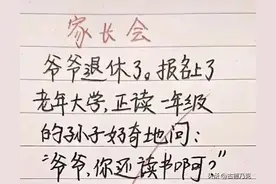 家长会
爷爷退休了。报名上了
老年大学,正读一年级
的孙子好奇地问:
“爷爷,你还读书啊?”